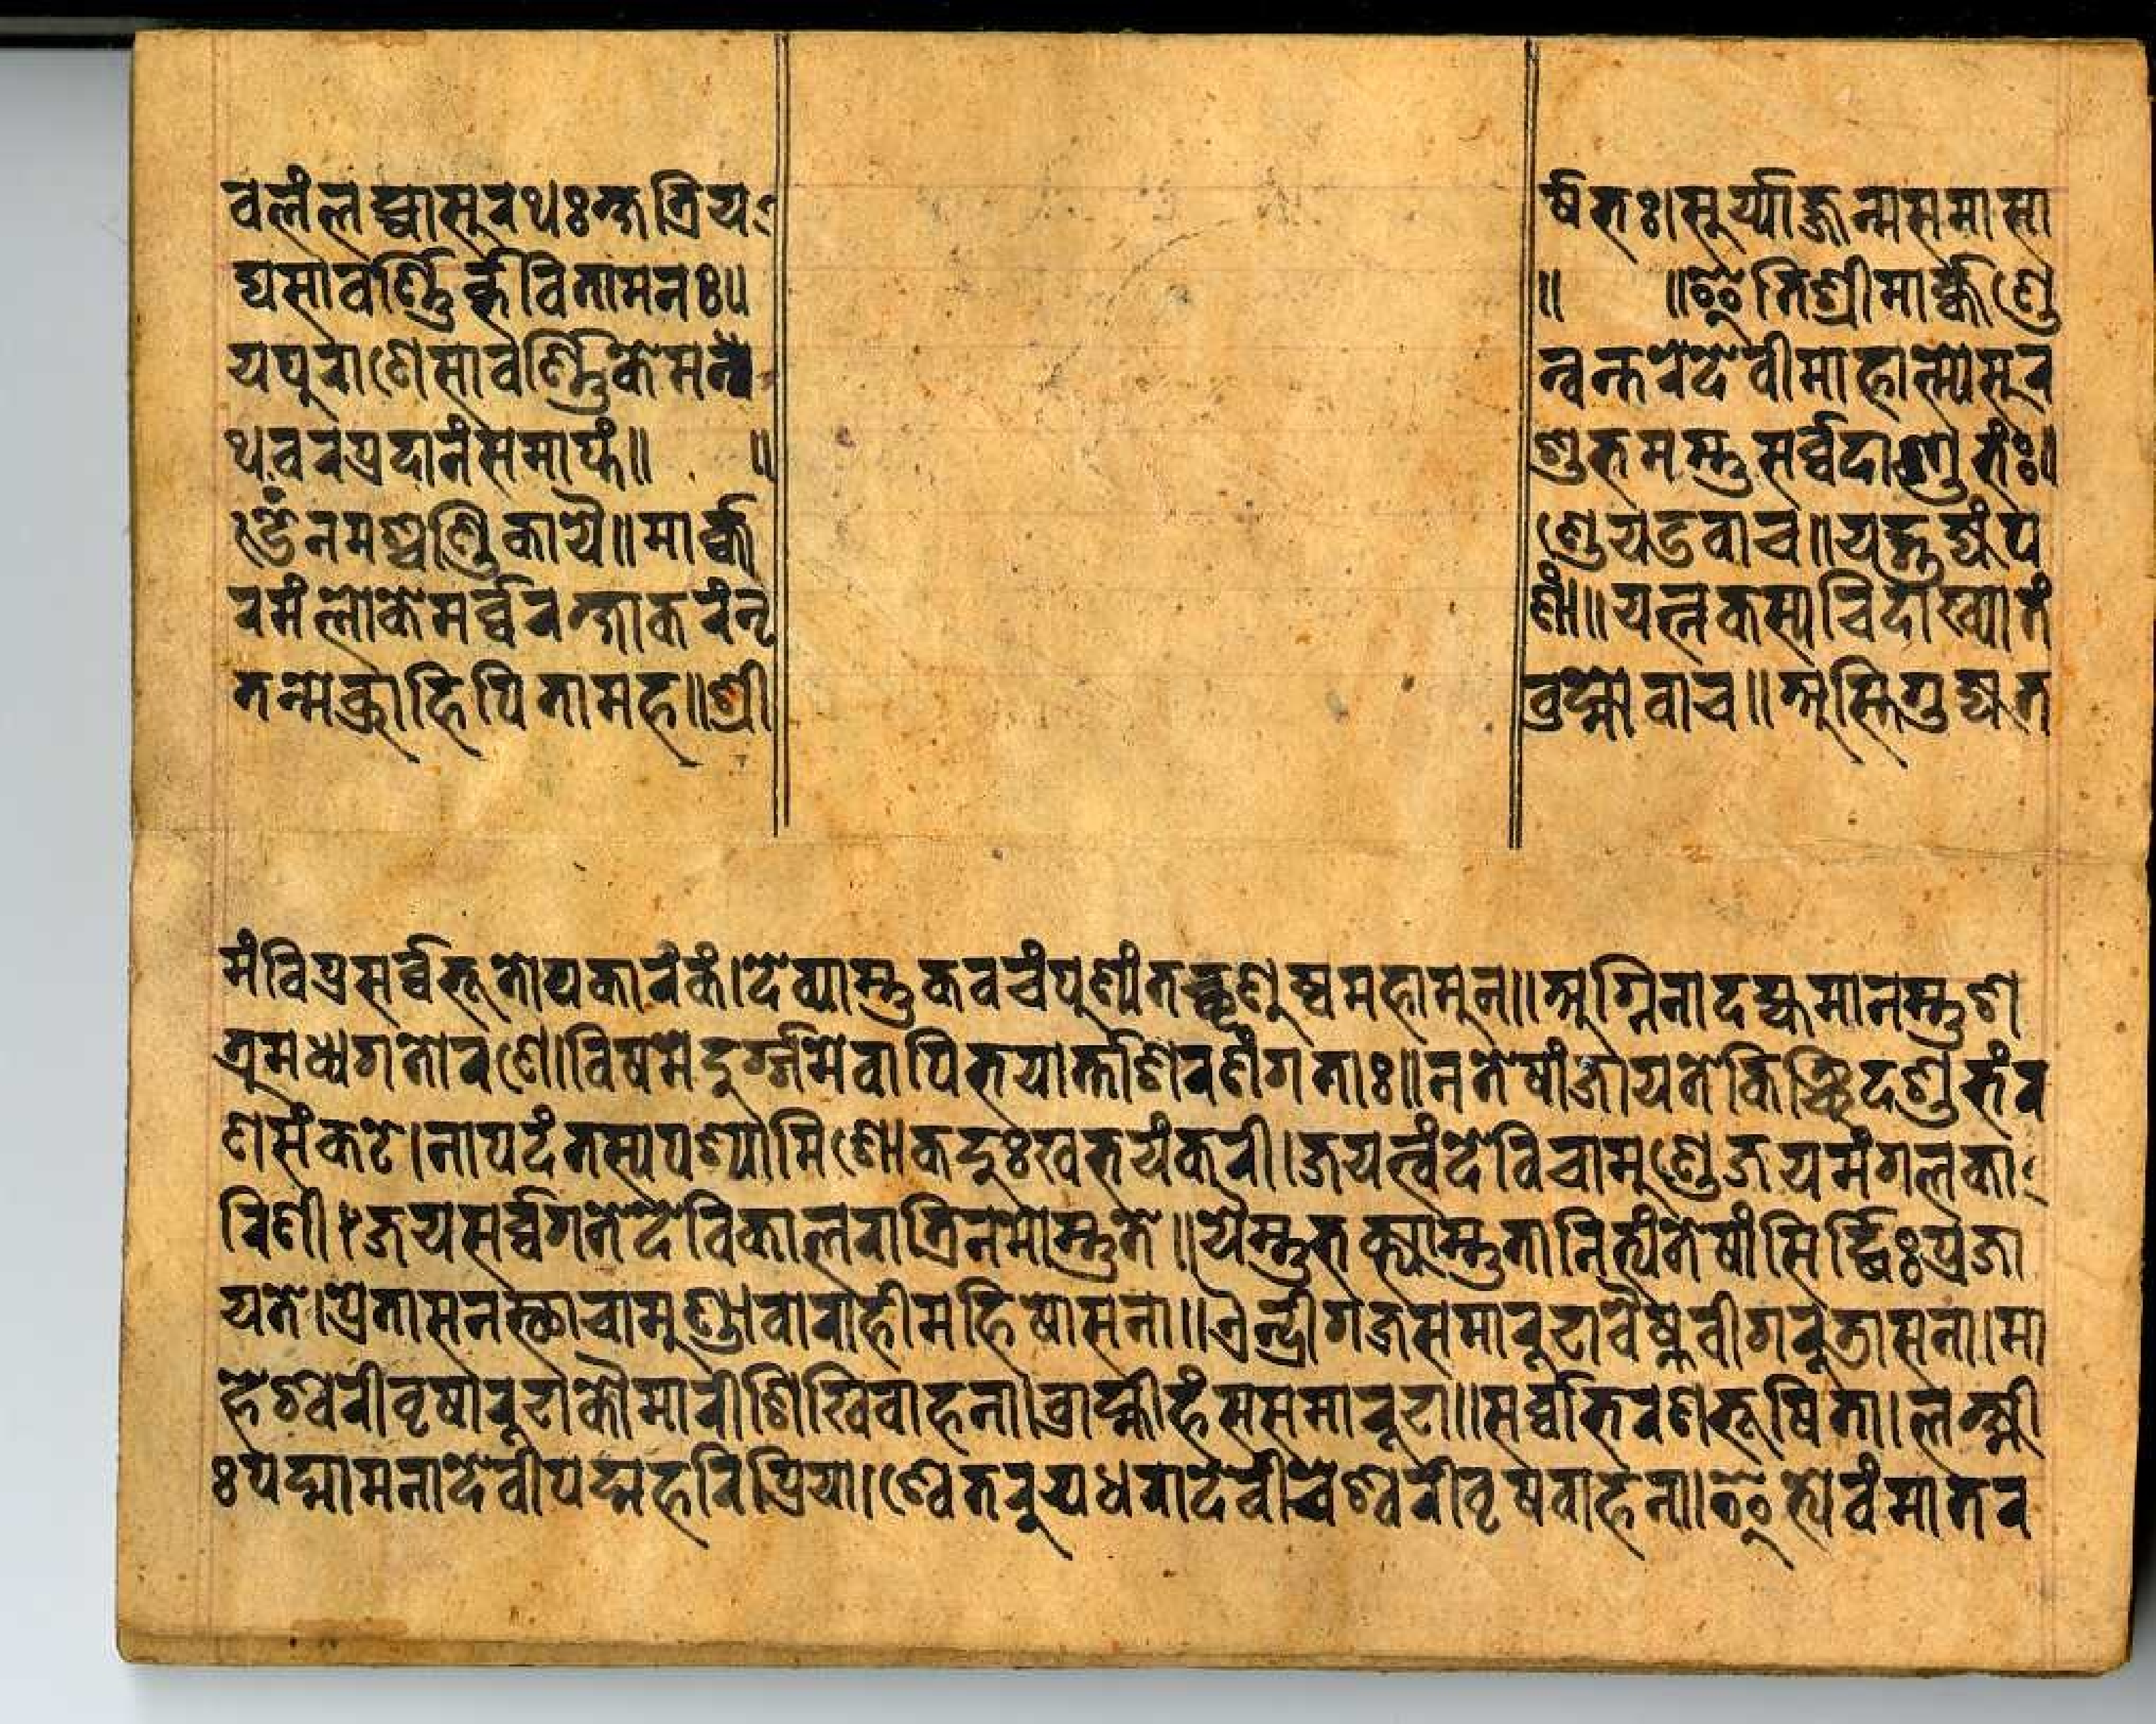 वलंलब्ध्वासुरथःक्षत्रिय र्षभः।सूर्य्याज्जन्मसमासा
द्यसावर्ण्णिर्ब्भवितामनुः॥ ॥ ॥इतिश्रीमार्क्कण्डे
यपुराणेसावर्ण्णिकेमन्व न्वन्तरेदेवीमाहात्म्येसुर
थवरप्रदानंसमाप्तं॥ ॥ शुभमस्तुसर्व्वदाशुभंः॥
ॐनमश्चण्डिकायै॥मार्क्क ण्डेयउवाच॥यद्गुह्यंप
रमंल्लोकेसर्व्वरक्षाकरंनृ णां॥यन्नकस्यचिदाख्यातं
तन्मेब्रूहिपितामह॥श्री ब्रह्मोवाच॥अस्तिगुह्यत
मंविप्रसर्व्वभूतोपकारकं।देव्यास्तुकवचंपुण्यंतच्छृणुष्वमहामुन॥अग्निनादह्यमानस्तुश
त्रुमध्यगतोरणे।विषमेदुर्ग्गमेवापिभयार्त्ताशरणंगताः॥नतेषांजायतेकिञ्चिदशुभंर
णसंकटे।नापदंतस्यपश्यामिशोकदुःखभयंकरी।जयत्वंदेविचामुण्डेजयमंगलका
रिणी।जयसर्व्वगतेदेविकालरात्रिनमोस्तुते॥यैस्तुभक्त्यास्तुतानित्यंतेषांसिर्द्धिःप्रजा
यते।प्रेतासनस्थाचामुण्डावाराहीमहिषासना॥ऐन्द्रीगजसमारूढावैष्णवीगरुडासना।मा
हेश्वरीवृषारूढाकौमारीशिखिवाहना।ब्राह्मीहंससमारूढा॥सर्व्वाभरणभूषिता।लक्ष्मी
ःपद्मासनादेवीपद्महरिप्रिया।श्वेतरूपधरादेवीचेश्वरीवृषवाहना।इत्येवंमातर